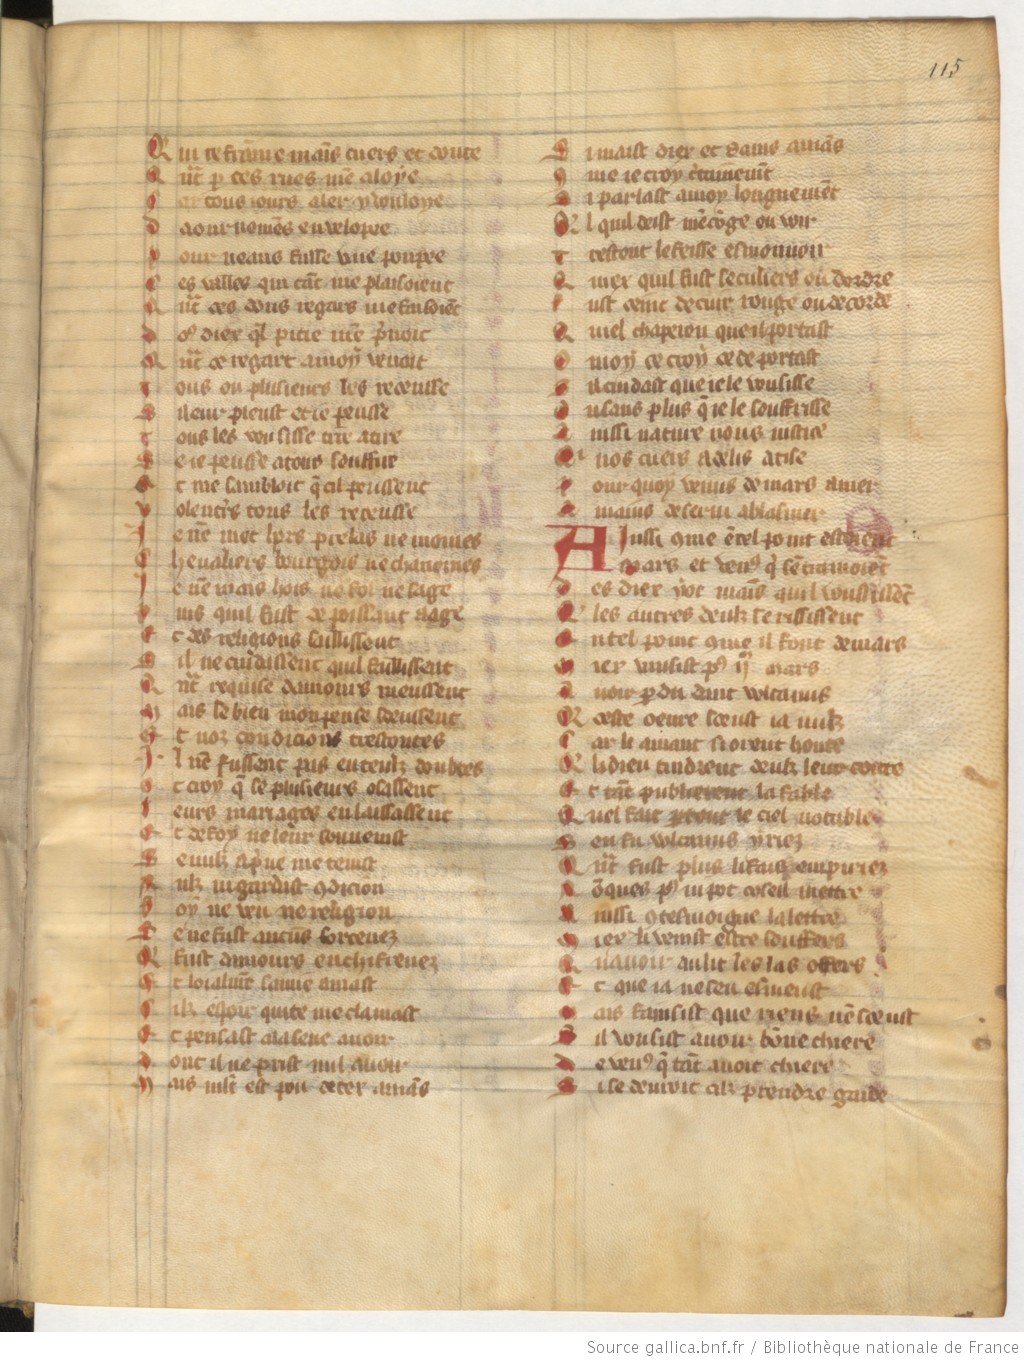 115
Qui refraime mains cuers et donte
Qn̄t p ces rues mē aloye
Car tous iours aler y vouloye
Daournemēs enuelopee
Pour neant fusse vne poupee
Ces valles qui tāt me plaisoient
Qn̄t ces dous regars me faisoiēt
Qn̄t ce regart a moy venoit
Tous ou plusieurs les receusse
Sil leur pleust et ie peusse
Tous les vousisse tire a tire
Se ie peusse a tous souffire
Et me sambloit q̄ cil peussent
Volentrs tous les receusse
Ie nē met hors prelas ne moines
Cheualiers bourgois ne chanoines
Ie nē mais hois ne fol ne sage
Puis quil fust de poissant aage
Et des religions saillissent
Sil ne cuidassent quil faillissent
Qn̄t requise damours meussent
Mais se bien mon pense sceussent
Et noz condicions trestoutes
Il nē fussent pas en teulz doubtes
Et croy q̄ se plusieurs osassent
Leurs mariages en laissassent
Et de foy ne leur souuenist
Se nulz a priue me tenist
Nulz ni gardast 9dicion
Foy ne veu ne religion
Se ne fust aucūs forcenez
Qui fust damours enchifrenez
Et loialmt samie amast
Cilz espoir quite me clamast
Et pensast a la seue auoir
Dont il ne prist nul auoir
Mais mlt est pou de tex amās
Si maist diex et sains amās
Come ie croy ctainemēt
Si parlast a moy longuemēt
Quil quil deist mēcōge ou voir
Trestout le feisse esmouuoir
Quiex quil fust seculiers ou dordre
Fust ceint de cuir rouge ou de corde
Quel chaperon que il portast
A moy ce croy ce deportast
Sil cuidast que ie le vousisse
Ou sans plus q̄ ie le souffrisse
Ainssi nature nous iustice
Qui nos cuers a delis atise
Pour quoy venus de mars amer
A mains deserui a blasmer
Ainssi 9me ētel point estoient
Mars et venꝰ q̄ sētramoiēt
Des diex y ot mains quil vousissēt
Que les autres deulz se rissisent
En tel point 9me il font de mars
Miex vousist pꝰ ij M mars
Auoir pdu dant vlcanus
Que ceste oeure sceust ia nulz
Car li amant si orent honte
Et tāt publierent la fable
Quel fait par tout le ciel notable
Son fu vlcanus yriez
Qn̄t fust plus li fais empiriez
Conques pꝰ ni pot conseil mettre
Ainssi 9 tesmoigne la lettre
Miex li venist estre souffers
Quauoir au lit les las offers
Et que ia ne seu esmeust
Mais fainsist que riens nē sceust
Sil vousist auoir bōne chiere
De venꝰ q̄ tāt auoit chiere
Si se deuroit cilz prendre garde
Source gallica.bnf.fr / Bibliothèque nationale de France